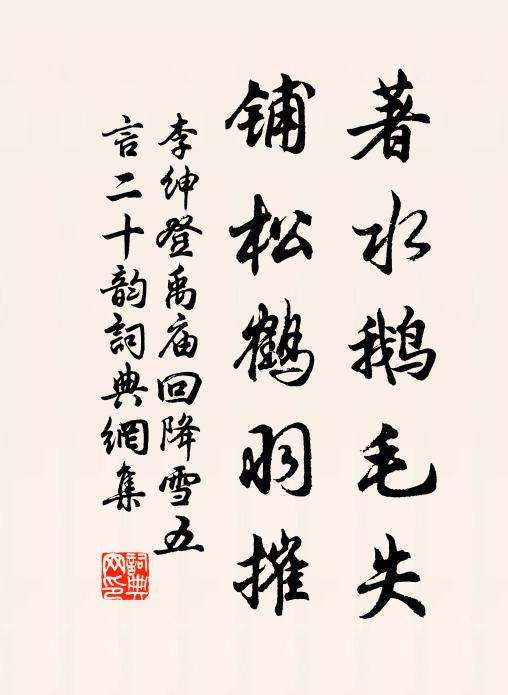 著水鹅毛失
铺松鹤羽摧
李绅登禹庙回降雪五
言二十韵詞典網集
詞典
网印